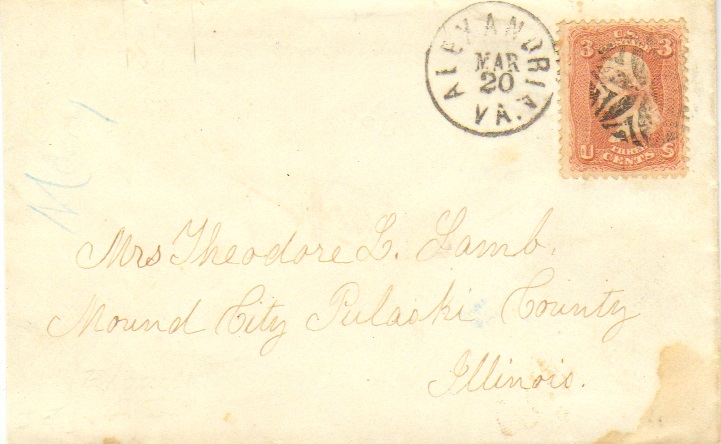 ALEXANDRIA
MAR
20
VA.
3 U.S. 3
POSTAGE
U THREE S
CENTS
Mrs Theodore L. Lamb.
Mound City Pulaski County
Illinois.